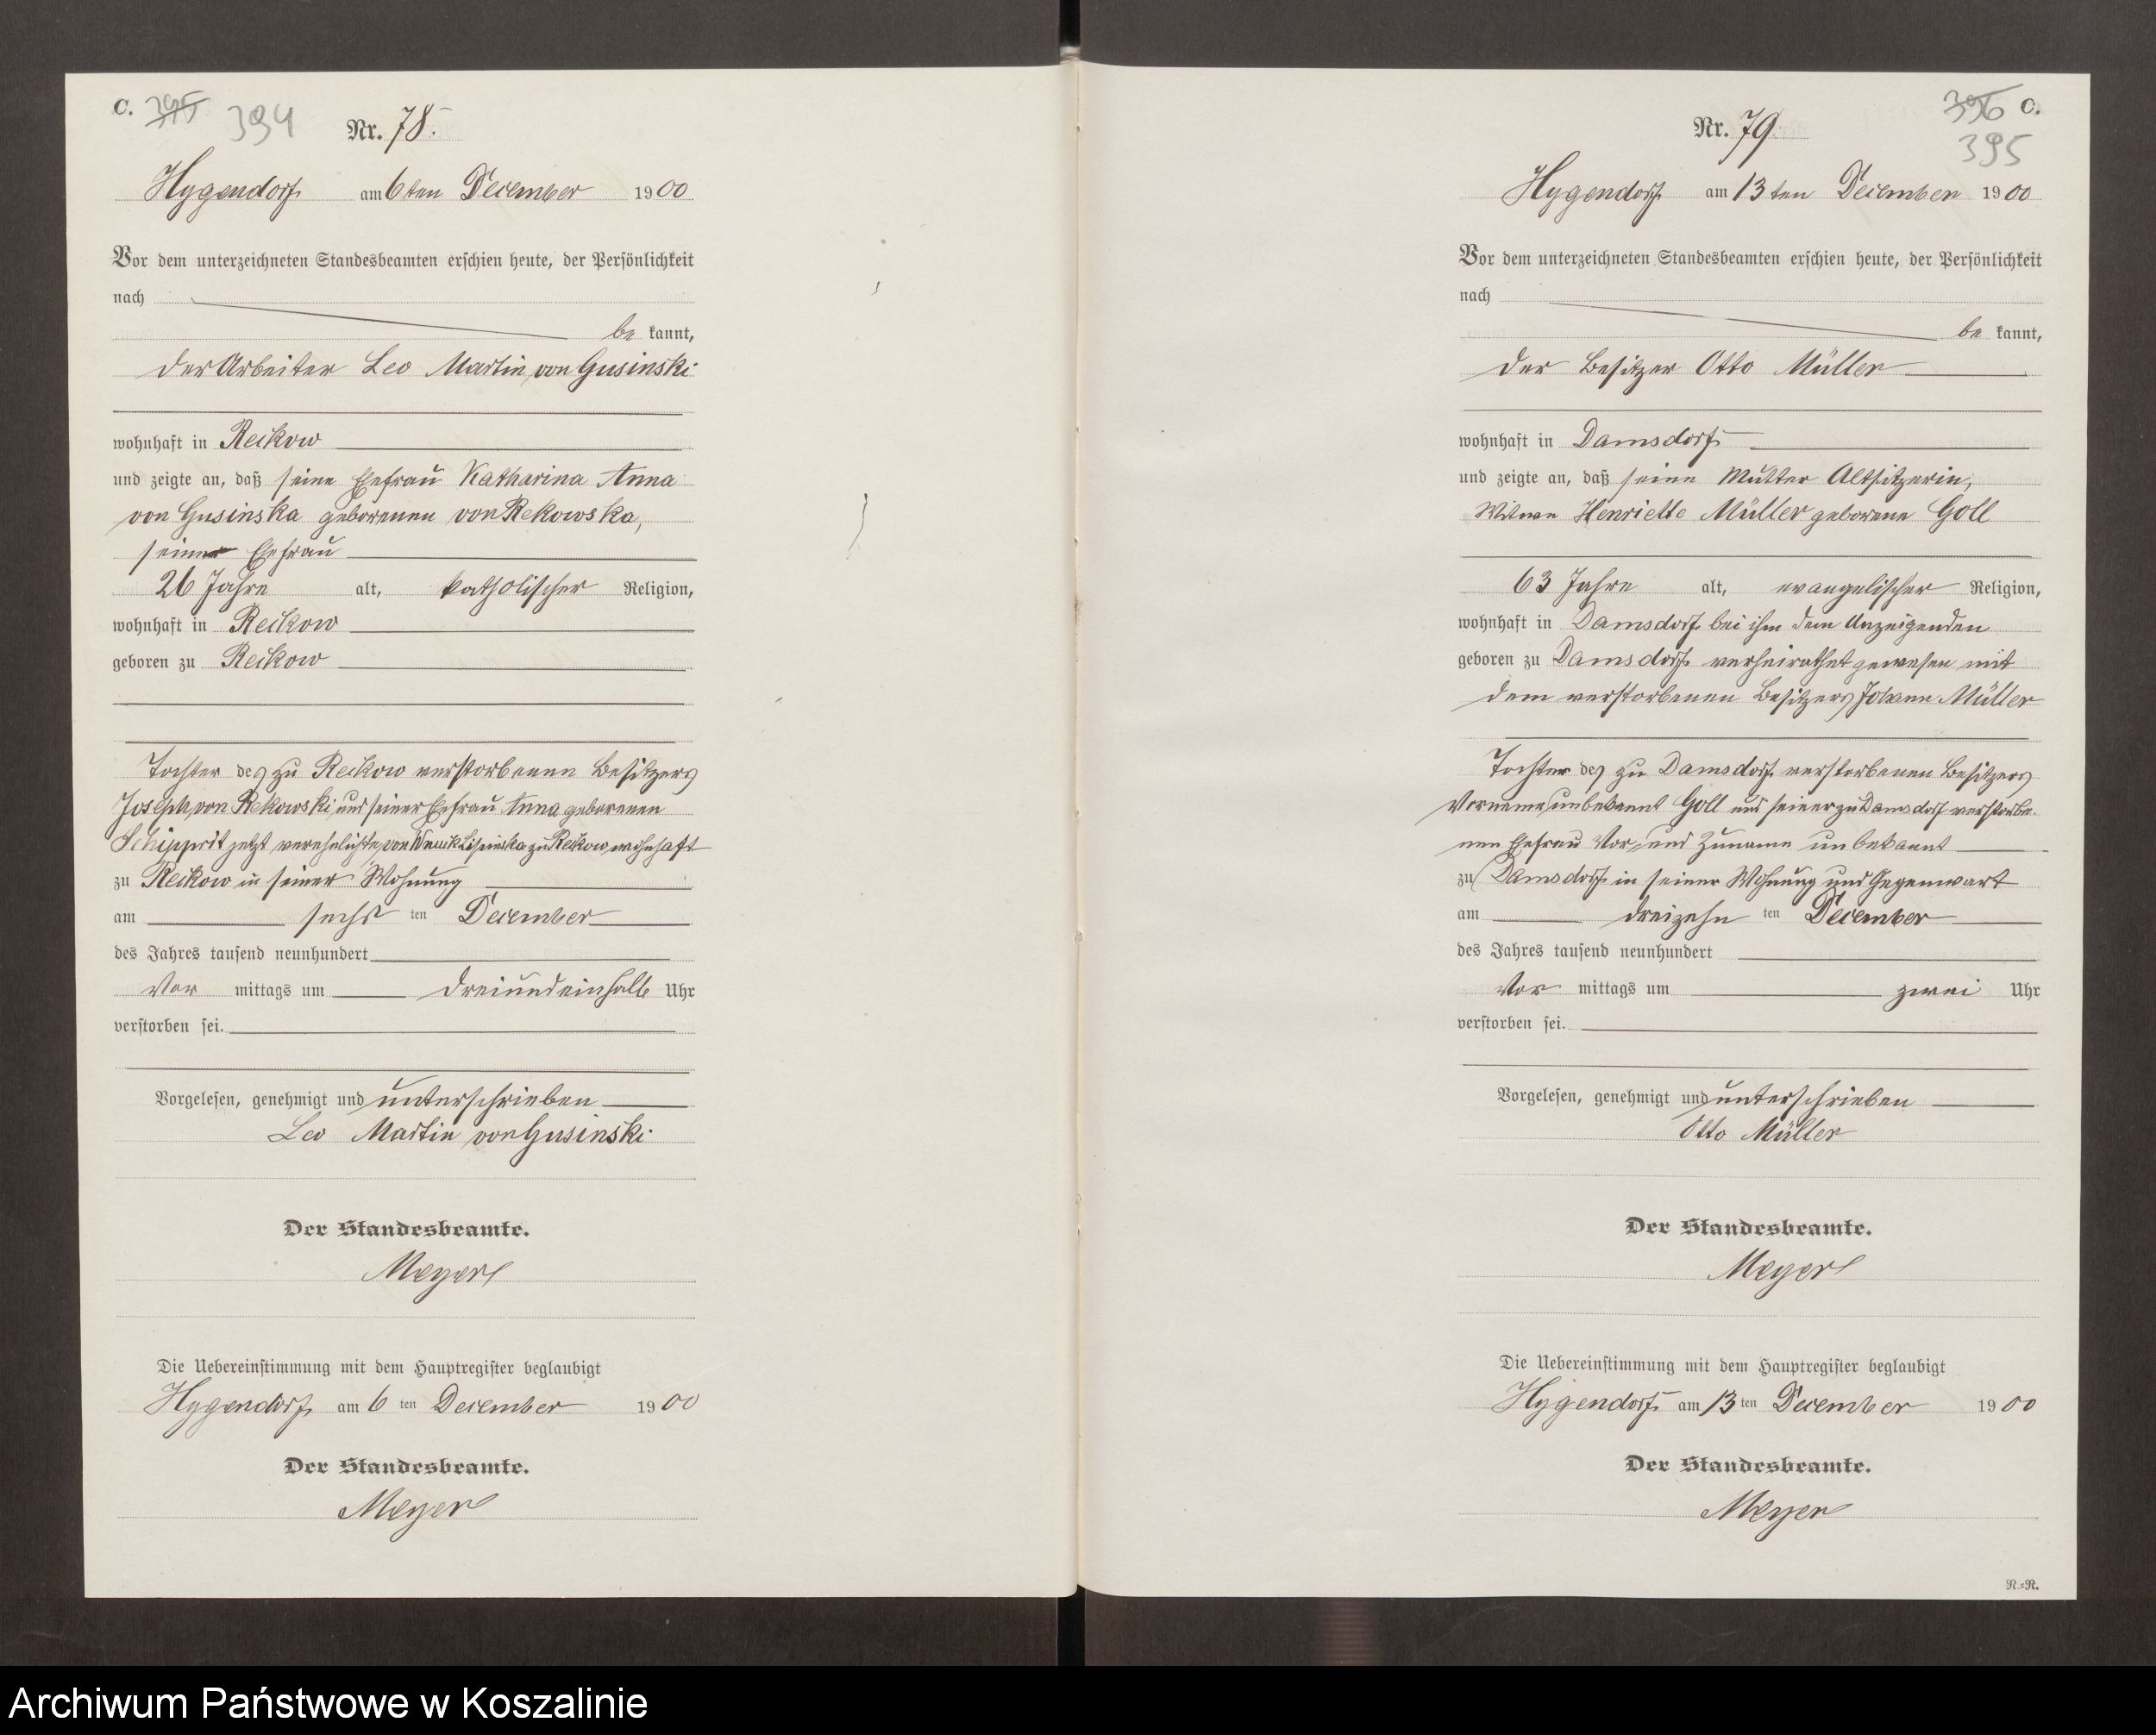 C. 395 394
Nr. 78.
Hygendorf am 6ten December 1900
Vor dem unterzeichneten Standesbeamten erschien heute, der Persönlichkeit
nach
be kannt,
der Arbeiter Leo Martin von Gusinski
wohnhaft in Reckow
und zeigte an, daß seine Ehefrau Katharina Anna
von Gusinska geborenen von Rekowska,
seiner Ehefrau
26 Jahre alt, katholischer Religion,
wohnhaft in Reckow
geboren zu Reckow
Tochter des zu Reckow verstorbenen Besitzers
Joseph von Rekowski und seiner Ehefrau Anna geborenen
jetzt verehelichte von zu Reckow wohnhaft
zu Reckow in seiner Wohnung
am sechs ten December
des Jahres tausend neunhundert
Vor mittags um dreiundeinhalb Uhr
verstorben sei.
Vorgelesen, genehmigt und unterschrieben
Leo Martin von Gusinski
Der Standesbeamte.
Meyer
Die Uebereinstimmung mit dem Hauptregister beglaubigt
Hygendorf am 6 ten December 1900
Der Standesbeamte.
Meyer
396 C.
395
Nr. 79
Hygendorf am 13ten December 1900
Vor dem unterzeichneten Standesbeamten erschien heute, der Persönlichkeit
nach
be kannt,
der Besitzer Otto Müller
wohnhaft in Damsdorf
und zeigte an, daß seine Mutter Altsitzerin,
Witwe Henriette Müller geborene Goll
63 Jahre alt, evangelischer Religion,
wohnhaft in Damsdorf bei ihm dem Anzeigenden
geboren zu Damsdorf verheirathet gewesen mit
dem verstorbenen Besitzers Johann Müller
Tochter des zu Damsdorf verstorbenen Besitzers
Vorname unbekannt Goll und seiner zu Damsdorf verstorbe-
nen Ehefrau Vor- und Zuname unbekannt
zu Damsdorf in seiner Wohnung und Gegenwart
am dreizehn ten December
des Jahres tausend neunhundert
Vor mittags um zwei Uhr
verstorben sei.
Vorgelesen, genehmigt und unterschrieben
Otto Müller
Der Standesbeamte.
Meyer
Die Uebereinstimmung mit dem Hauptregister beglaubigt
Hygendorf am 13 ten December 1900
Der Standesbeamte.
Meyer
N.=N.
Archiwum Państwowe w Koszalinie